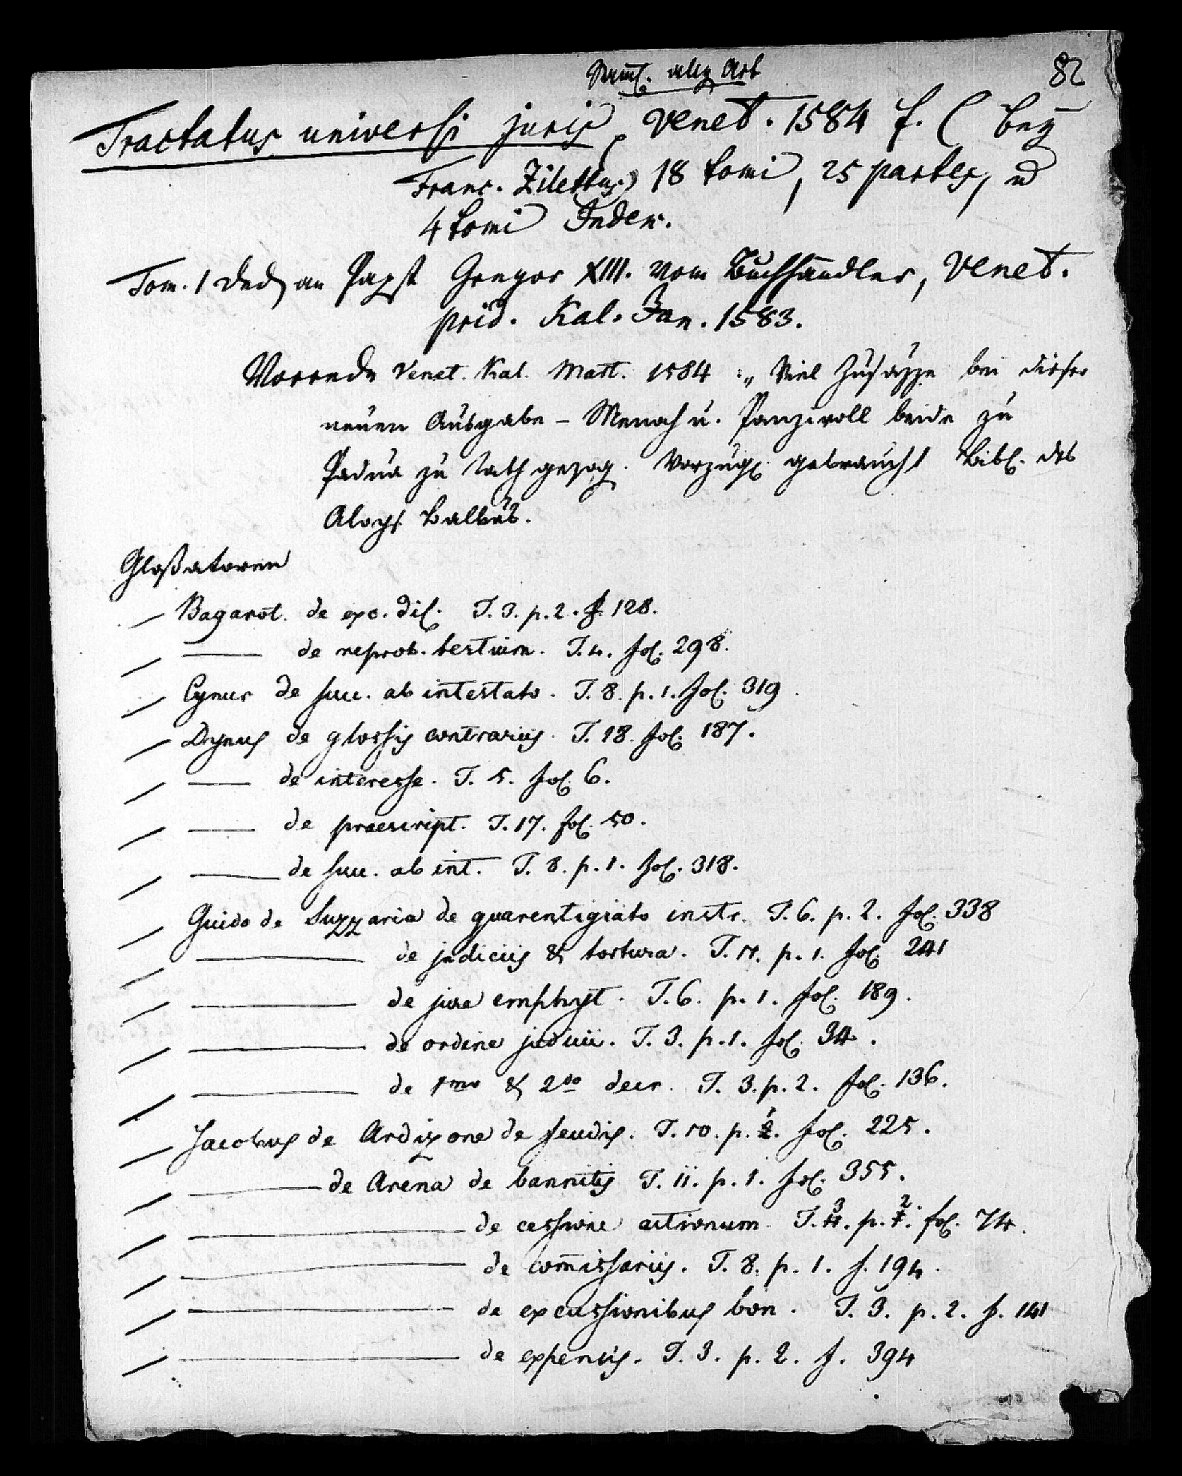 82
Tractatus universi juris, Venet. 1584 f. (bey
Franc. Zilettus) 18 tomi, 25 partes, u
4 tomi Index.
Tom. 1 Ded. an Papst Gregor XIII. vom Buchhändler, Venet.
prid. Kal. Jan. 1583.
Vorrede Venet. Kal. Mart. 1584 : „ Viel Zusäzze bei dieser
neuen Ausgabe – Menoch u. Panziroll beide zu
Padua zu Rath gezog. Vorzügl. gebraucht Bibl. des
Aloys. Balbus.
Gloßatoren
— Bagarot. de exc. dil. T. 3. p. 2. f. 128.
— —— de reprob. testium. T. 4. fol. 298.
— Cynus de succ. ab intestato. T. 8. p. 1. fol. 319.
— Dynus de glossis contrariis. T. 18. fol. 187.
— —— de interesse. T. 5. fol. 6.
— —— de praescript. T. 17. fol. 50.
— —— de succ. ab int. T. 8. p. 1. fol. 318.
— Guido de Suzzaria de guarentigiato instr. T. 6. p. 2. fol. 338
— —— de judiciis & tortura. T. 11. p. 1. fol. 241
— —— de jure emphyt. T. 6. p. 1. fol. 189.
— —— de ordine judicii. T. 3. p. 1. fol. 34.
— —— de 1mo & 2do decr. T. 3. p. 2. fol. 136.
— Jacobus de Ardizone de feudis. T. 10. p. 1. fol. 225.
— —— de Arena de bannitis T. 11. p. 1. fol. 355.
— —— de cessione actionum. T. 3. p. 2. fol. 74.
— —— de com̅issariis. T. 8. p. 1. f. 194.
— —— de excussionibus bon. T. 3. p. 2. f. 141
— —— de expensis. T. 3. p. 2. f. 394